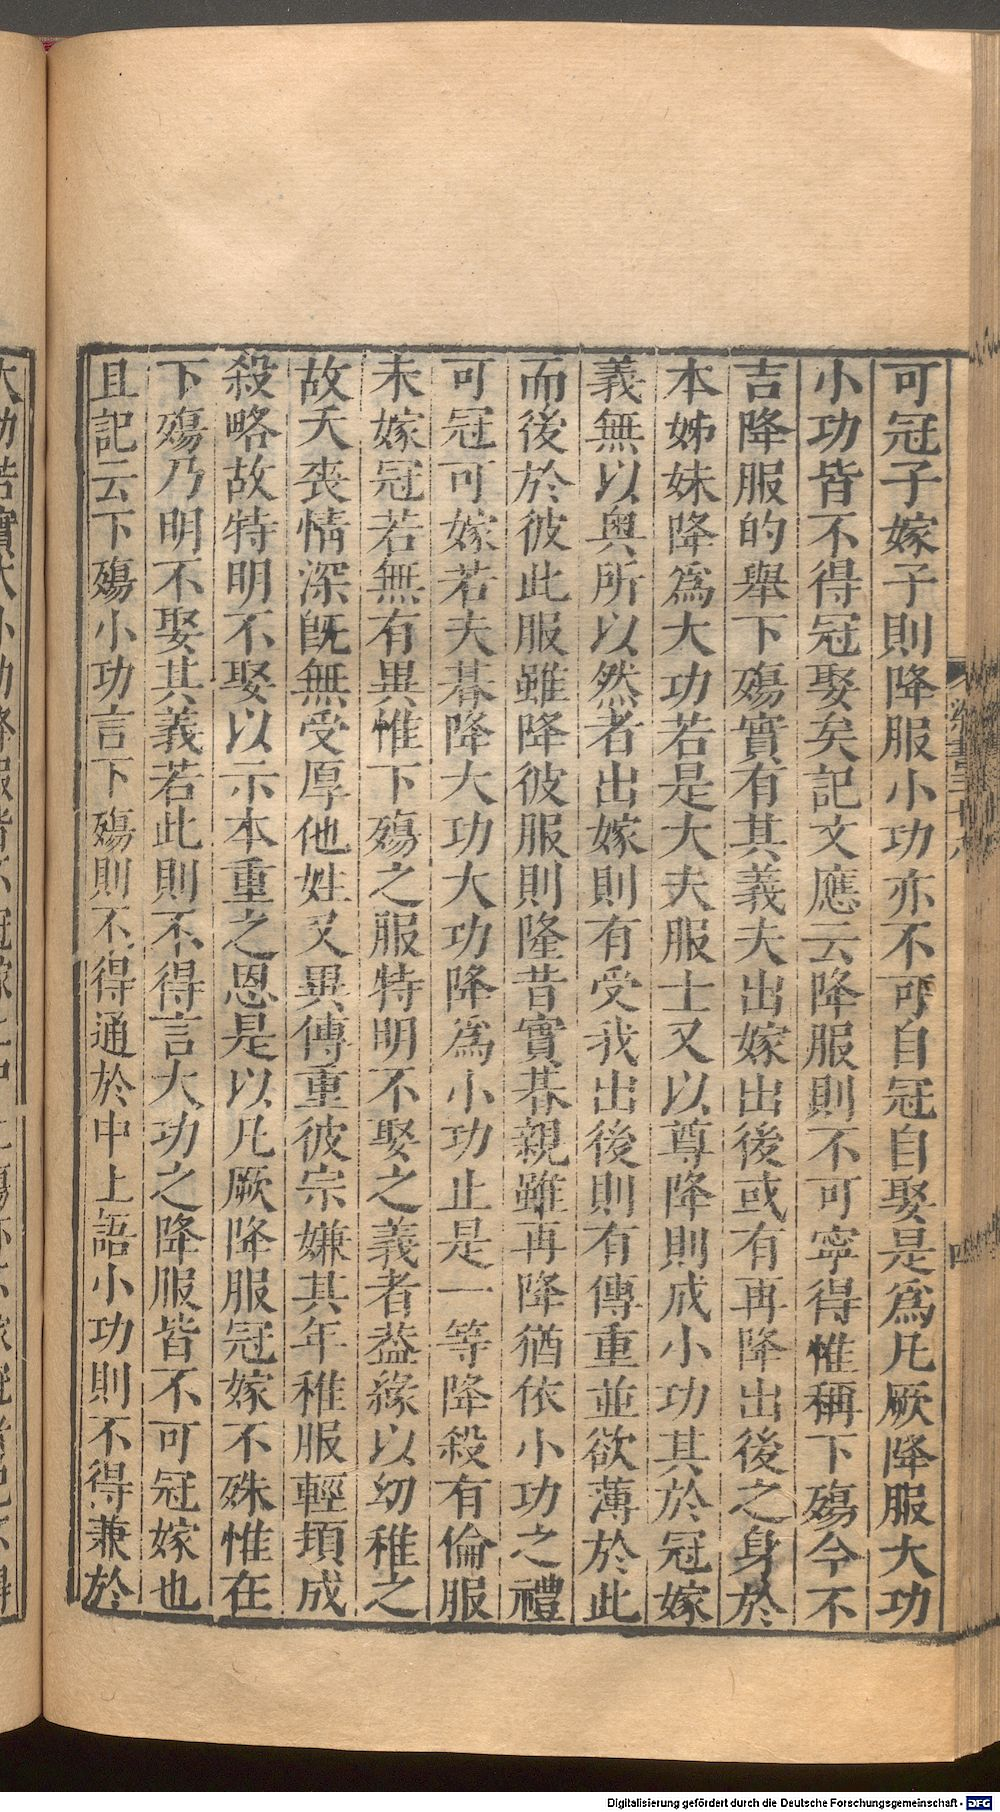 可冠子嫁子則降服小功亦不可自冠自娶是爲凡厥降服大功
小功皆不得冠娶矣記文應云降服則不可寧得惟稱下殤今不
言降服的舉下殤實有其義夫出嫁出後或有再降出後之身於
本姊妹降爲大功若是大夫服士又以尊降則成小功其於冠嫁
義無以異所以然者出嫁則有受我出後則有傳重並欲薄於此
而後於彼此服雖降彼服則隆昔實朞親雖再降猶依小功之禮
可冠可嫁若夫朞降大功大功降爲小功止是一等降殺有倫服
未嫁冠若無有異惟下殤之服特明不娶之義者葢緣以幼稚之
故夭喪情深旣無受厚他姓又異傳重彼宗嫌其年稚服輕頓成
殺略故特明不娶以示本重之恩是以凡厥降服冠嫁不殊惟在
下殤乃明不娶其義若此則不得言大功之降服皆不可冠嫁也
且記云下殤小功言下殤則不得通於中上語小功則不得兼於
Digitalisierung gefördert durch die Deutsche Forschungsgemeinschaft - DFG